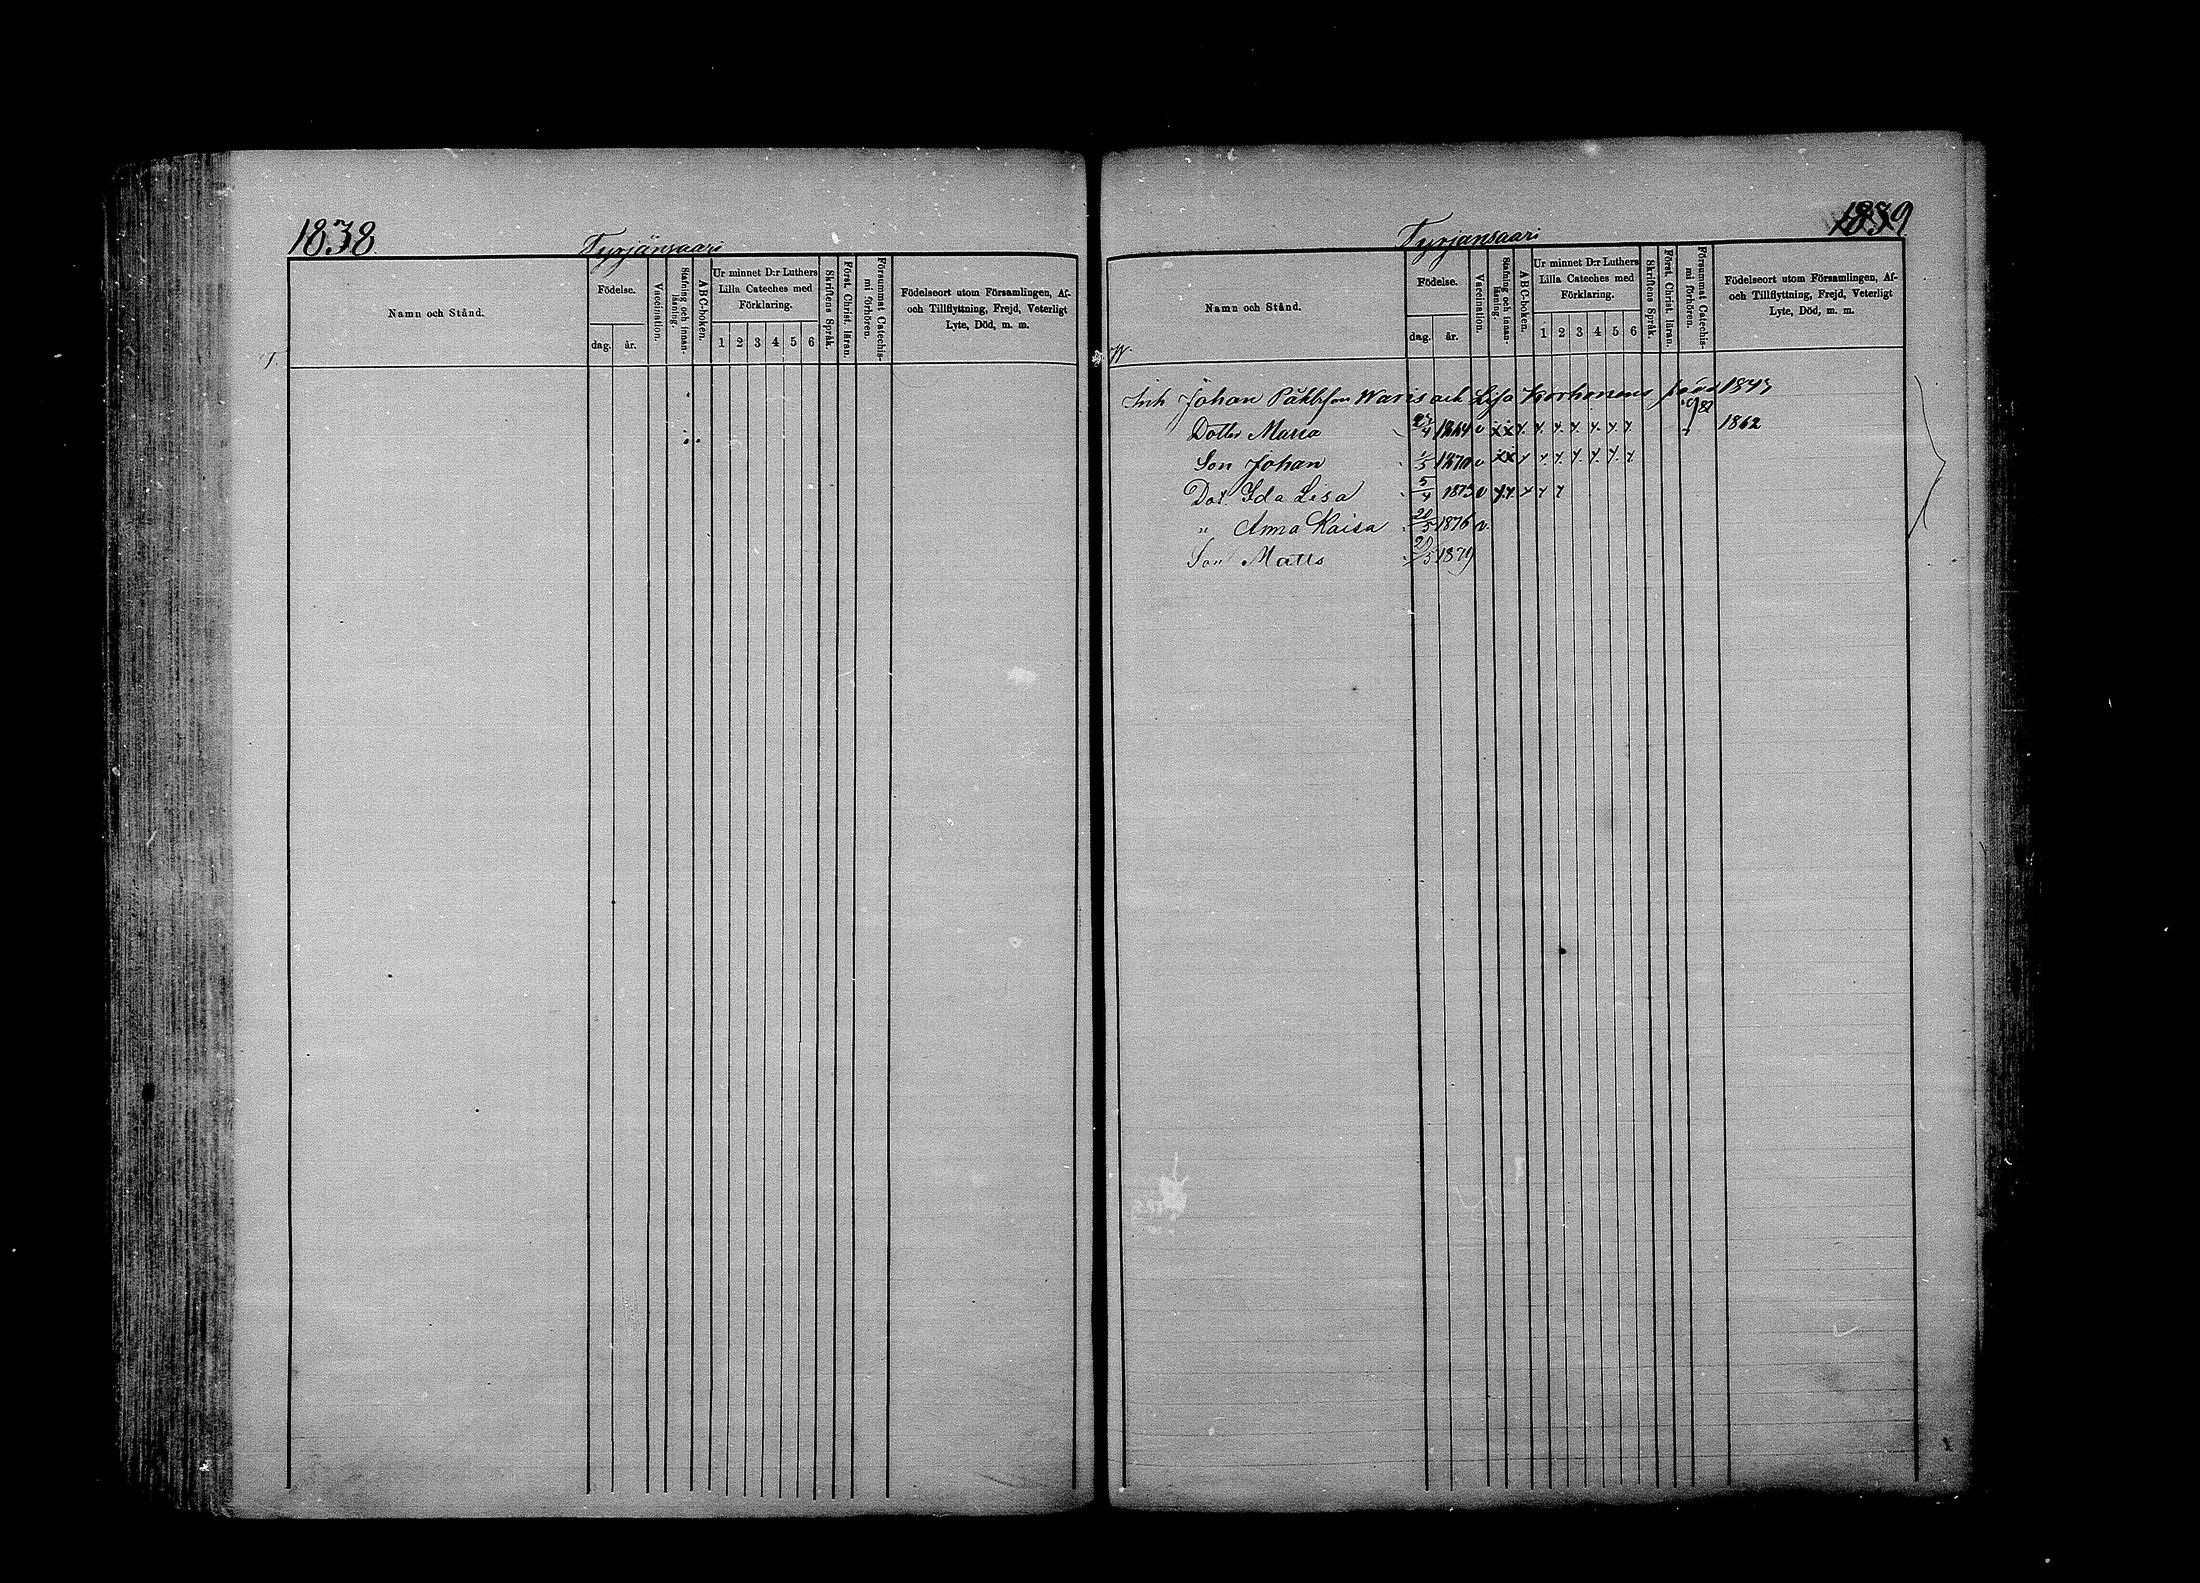 1838.
Tyrjänsaari
Namn och Stånd.
Födelse.
dag.
år.
Vaccination.
Stafning och innan-
läsning.
ABC-boken.
Ur minnet D:r Luthers
Lilla Cateches med
Förklaring.
1 2 3 4 5 6
Skriftens Språk.
Först. Christ. läran.
Försummat Catechis-
mi förhören.
Födelseort utom Församlingen, Af-
och Tillflyttning, Frejd, Veterligt
Lyte, Död, m. m.
1839
Tyrjansaari
Namn och Stånd.
Födelse.
dag.
år.
Vaccination.
Stafning och innan-
läsning.
ABC-boken.
Ur minnet D:r Luthers
Lilla Cateches med
Förklaring.
1 2 3 4 5 6
Skriftens Språk.
Först. Christ. läran.
Försummat Catechis-
mi förhören.
Födelseort utom Församlingen, Af-
och Tillflyttning, Frejd, Veterligt
Lyte, Död, m. m.
W.
Inh Johan Påhlsson Waris och Lisa Korhonens 1843
Dotter Maria 1864 v 1862
Son Johan 1/5 1870 v
Dot. Ida Lisa 5/4 1873 v
" Anna Kaisa 28/5 1876 v.
Son Matts 20/5 1879